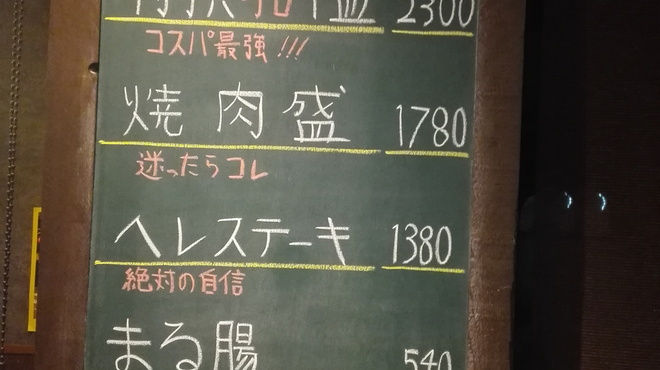 2300
コスパ最強!!!
焼肉盛 1780
迷ったらコレ
ヘレステーキ 1380
絶対の自信
まる腸 540